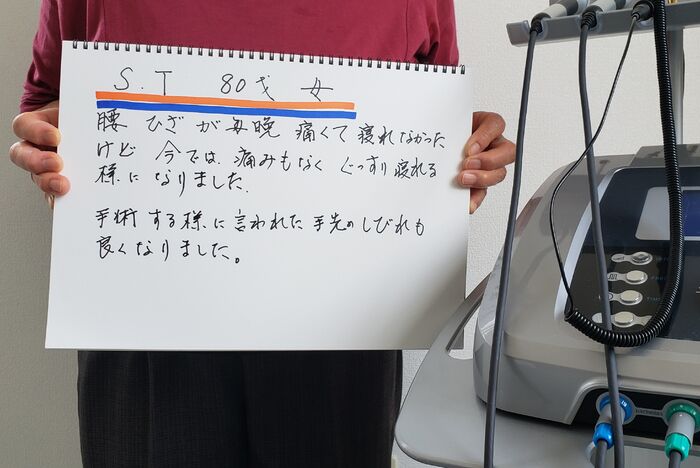 S.T 80才 女
腰 ひざ が 毎晩 痛くて 寝れなかった
けど 今では、痛みもなく ぐっすり 寝れる
様に なりました。
手術 する 様に 言われた 手先の しびれも
良く なりました。